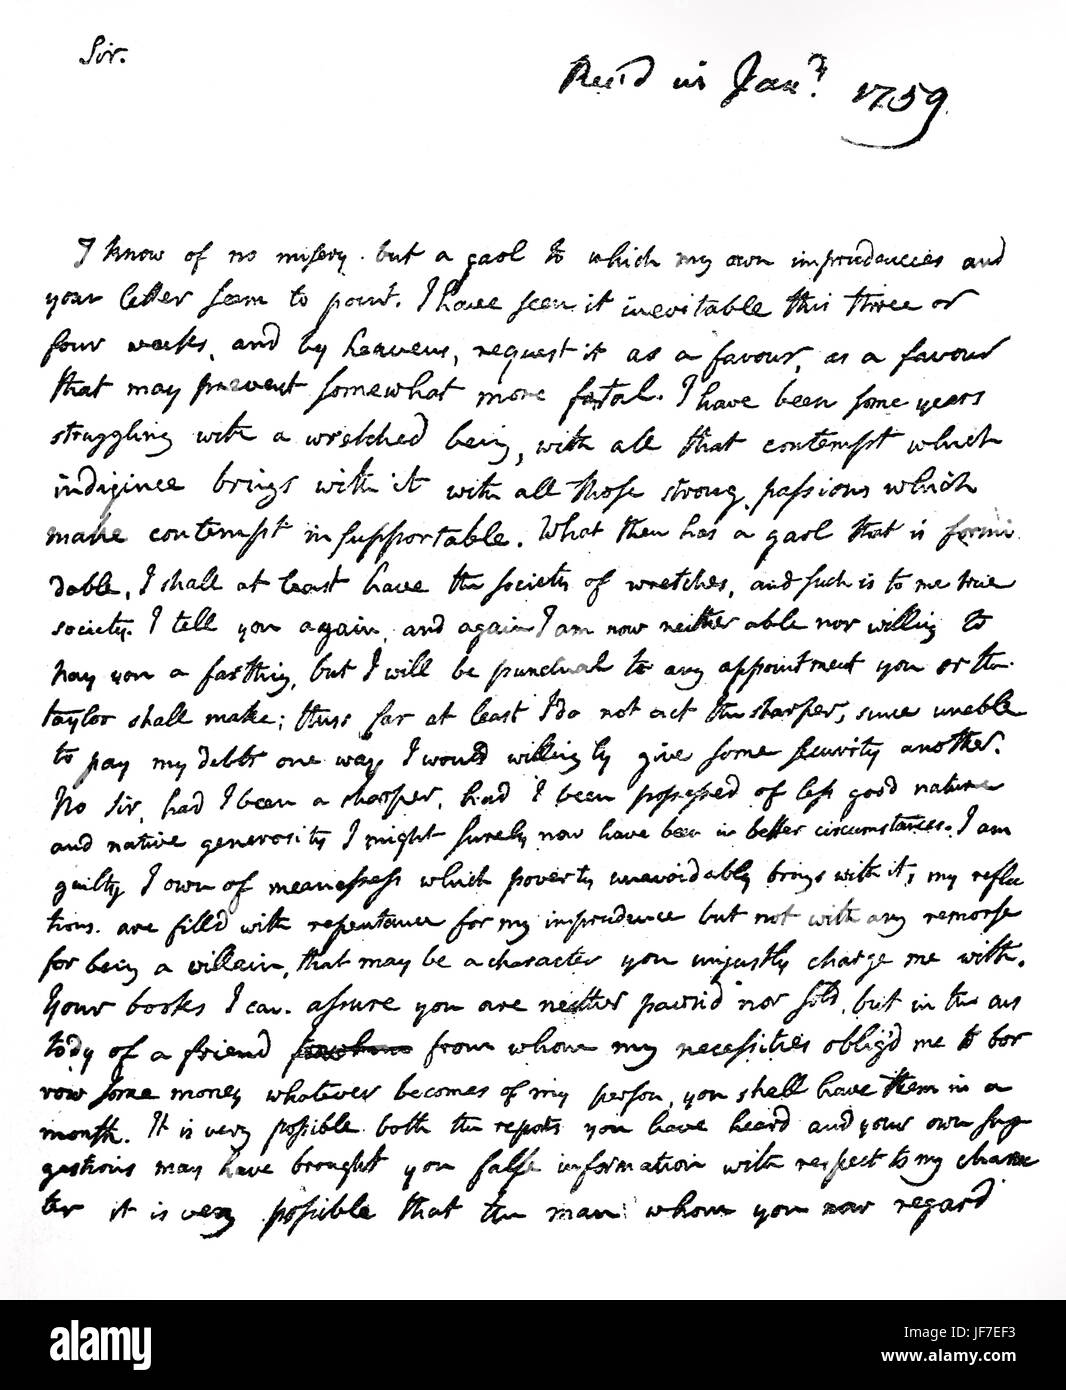 Sir.
Rec'd in Jan.y 1759
I know of no misery but a gaol to which my own imprudencies and
your letter seem to point. I have seen it inevitable this three or
four weeks, and by heavens, request it as a favour, as a favour
that may prevent somewhat more fatal. I have been some years
struggling with a wretched being, with all that contempt which
indigence brings with it with all those strong passions which
make contempt insupportable. What then has a gaol that is formi
dable, I shall at least have the society of wretches, and such is to me true
society. I tell you again and again I am now neither able nor willing to
pay you a farthing, but I will be punctual to any appointment you or the
taylor shall make; thus far at least I do not act the sharper, since unable
to pay my debts one way I would willingly give some security another.
No Sir, had I been a sharper, had I been possessed of less good nature
and native generosity I might surely now have been in better circumstances. I am
guilty I own of meannesses which poverty unavoidably brings with it, my reflec
tions are filld with repentance for my imprudence but not with any remorse
for being a villain, that may be a character you unjustly charge me with.
Your books I can assure you are neither pawn'd nor sold, but in the cus
tody of a friend from whom my necessities oblig'd me to bor
row some money, whatever becomes of my person, you shall have them in a
month. It is very possible both the reports you have heard and your own sug
gestions may have brought you false information with respect to my charac
ter it is very possible that the man whom you now regard
alamy
Image ID: JF7EF3
www.alamy.com